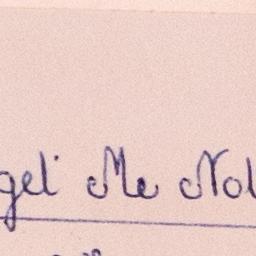 get Me Not